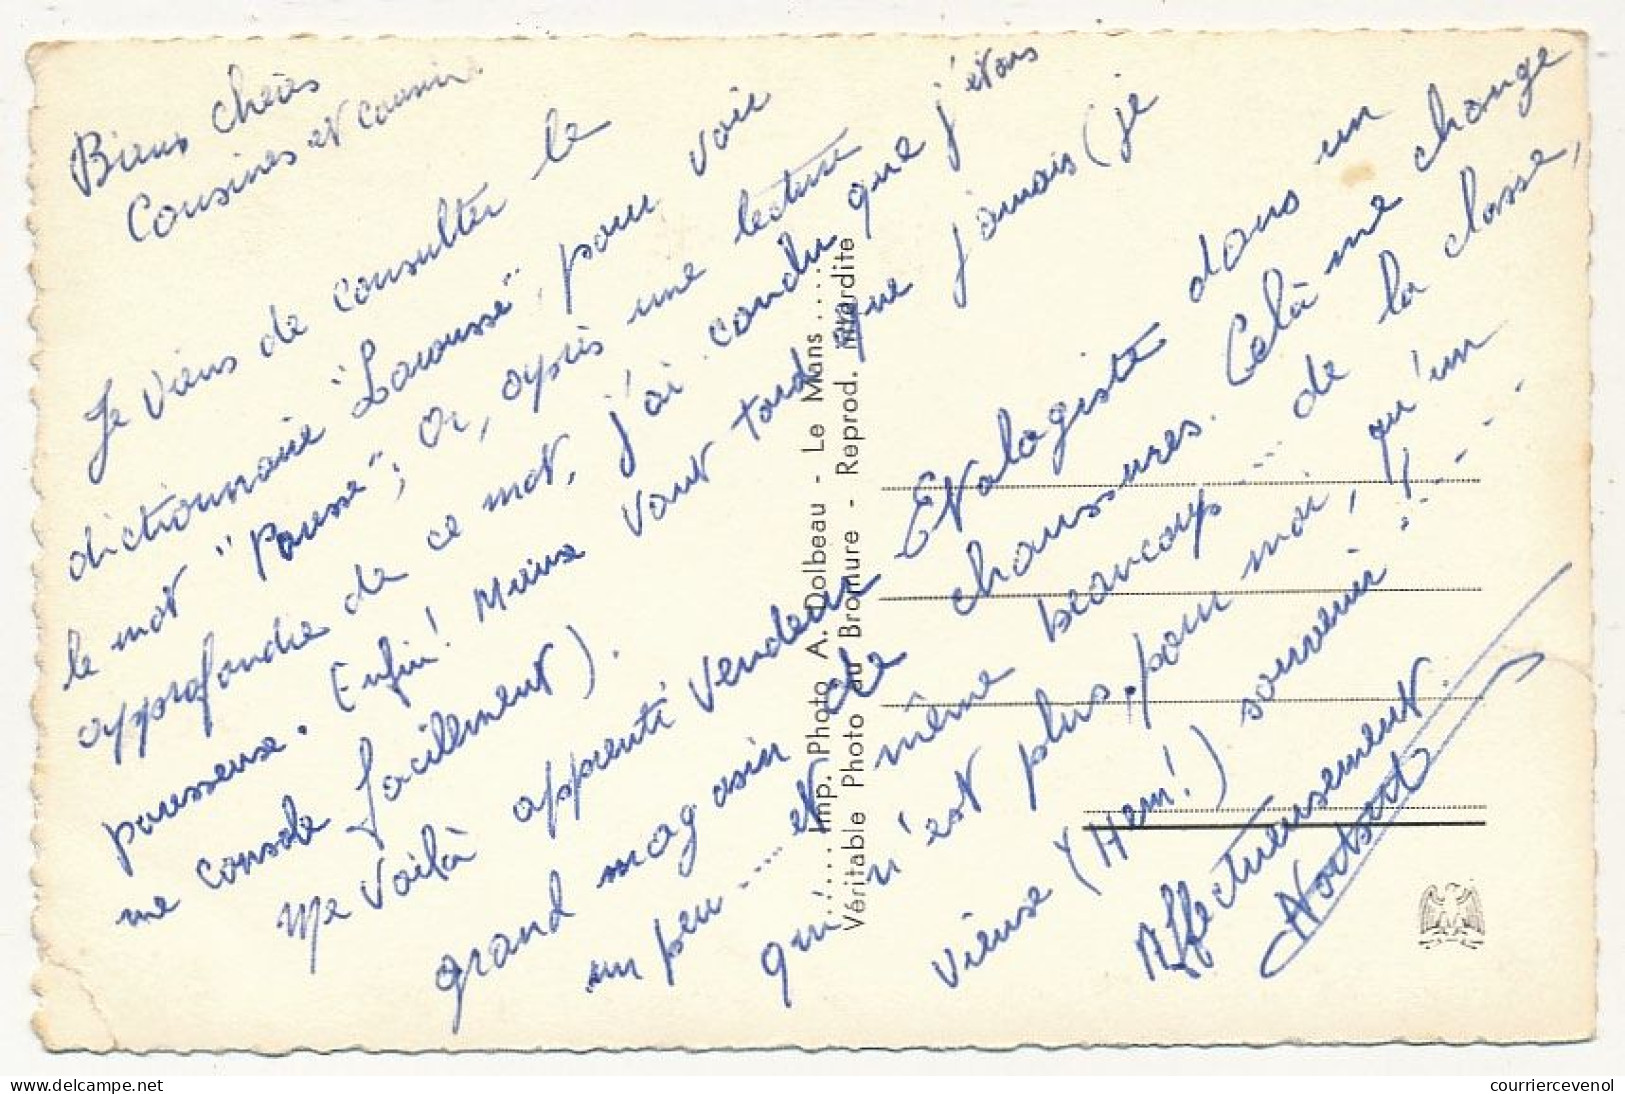 Biens chères
Cousines et cousins
Je viens de consulter le
dictionnaire "Larousse", pour voir
le mot "Paresse"; Or, après une lecture
approfondie de ce mot, j'ai conclu que j'étais
paresseuse. Enfin! Mieux vaut tard que jamais (je
me console facilement).
Me voilà apprenti Vendeur Etalagiste dans un
grand magasin de chaussures. Celà me change
un peu ..... et même beaucoup .... de la classe,
qui n'est plus, pour moi, qu'un
vieux (Hem!) souvenir!...
Affectueusement.
...... Imp. Photo A. Dolbeau - Le Mans ......
Véritable Photo au Bromure - Reprod. interdite
courriercevenol